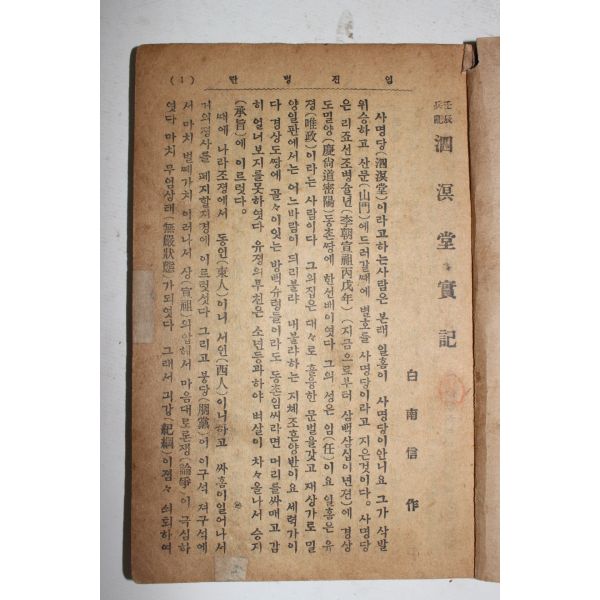 임진병란
(1)
壬辰
兵亂
泗溟堂實記
白南信作
사명당(泗溟堂)이라고하는사람은 본래 일홈이 사명당이안니요 그가 삭발
위승하고 산문(山門)에드러갈때에 별호를 사명당이라고 지은것이다。 사명당
은 리죠선조병술년(李朝宣祖丙戌年) (지금으로부터 삼백삼십이년젼)에 경상
도밀양(慶尙道密陽)동촌땅에 한선배이엿다 그의 성은 임(任)이요 일홈은 유
졍(唯政)이라는 사람이다 그의집은 대々로 흘륭한 문벌을갖고 재상가로 밀
양일판에서는 어느바람이 듸리불랴 내불랴하는 지체조흔양반이요 세력가이
다 경상도땅에 골々이잇는 방백슈령들이라도 동촌임씨라면 머리를싸매고 감
히 얼너보지를못하엿다 유졍의부친은 소년등과하야 벼살이 차々올나서 승지
(承旨)에 이르럿다。
때에 나라조졍에서 동인(東人)이니 서인(西人)이니하고 싸홈이일어나서
거의졍사를 폐지할지경에 이르럿섯다 그리고 붕당(朋黨)이 이구석 져구석에
서 마치 벌떼가치 이러나서 상(宣祖)의압헤서 마음대로론쟁(論爭)이 극심하
엿다 마치 무엄상태(無嚴狀態)가되엿다 그래서 긔강(紀綱)이졈々 쇠퇴하여